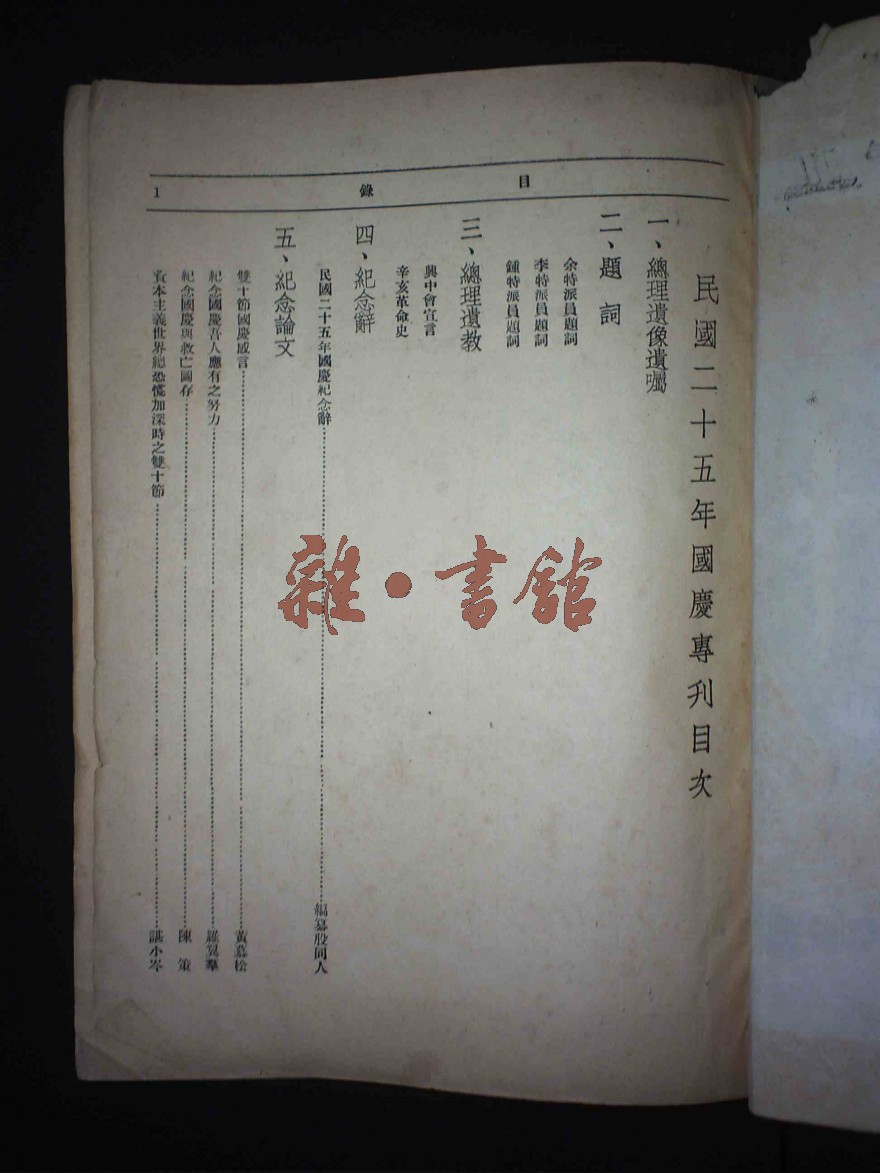 目錄 1
民國二十五年國慶專刊目次
一、總理遺像遺囑
二、題詞
余特派員題詞
李特派員題詞
鍾特派員題詞
三、總理遺教
興中會宣言
辛亥革命史
四、紀念辭
民國二十五年國慶紀念辭 編纂股同人
五、紀念論文
雙十節國慶感言 黃慕松
紀念國慶吾人應有之努力 羅翼羣
紀念國慶與救亡圖存 陳策
資本主義世界總恐慌加深時之雙十節 諶小岑
雜·書館